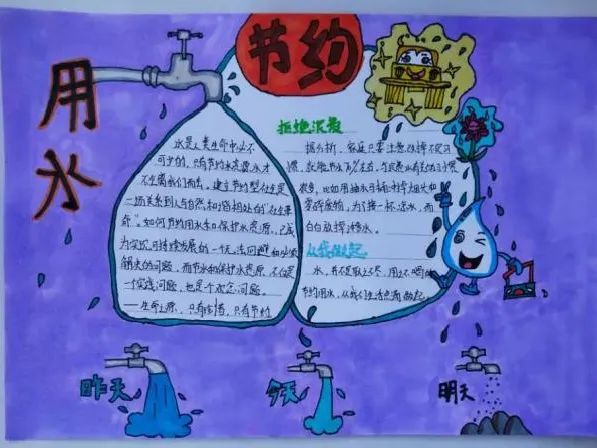 节约
用水
水是人类生命中必不
可少的，只有节约水资源，水才
不生离我们而去。建立节约型社会是
一场关系到人与自然和谐相处的"社会革
命"。如何节约用水和保护水资源，已成
为实现可持续发展的一个无法回避和必须
解决的问题，而节水和保护水资源，不仅是
一个实践问题，也是个观念问题。
——生命之源，只有珍惜，只有节约
拒绝浪费
据分析，家庭只要注意改掉不良习
惯，就能节水70%左右，与浪费水有关的习惯
很多，比如用抽水马桶冲掉烟头和
零碎废物，为了接一杯凉水，而
白白放掉
从我做起
水，我不是取之不尽，用之不竭的
节约用水，从我们生活点滴做起
昨天
今天
明天